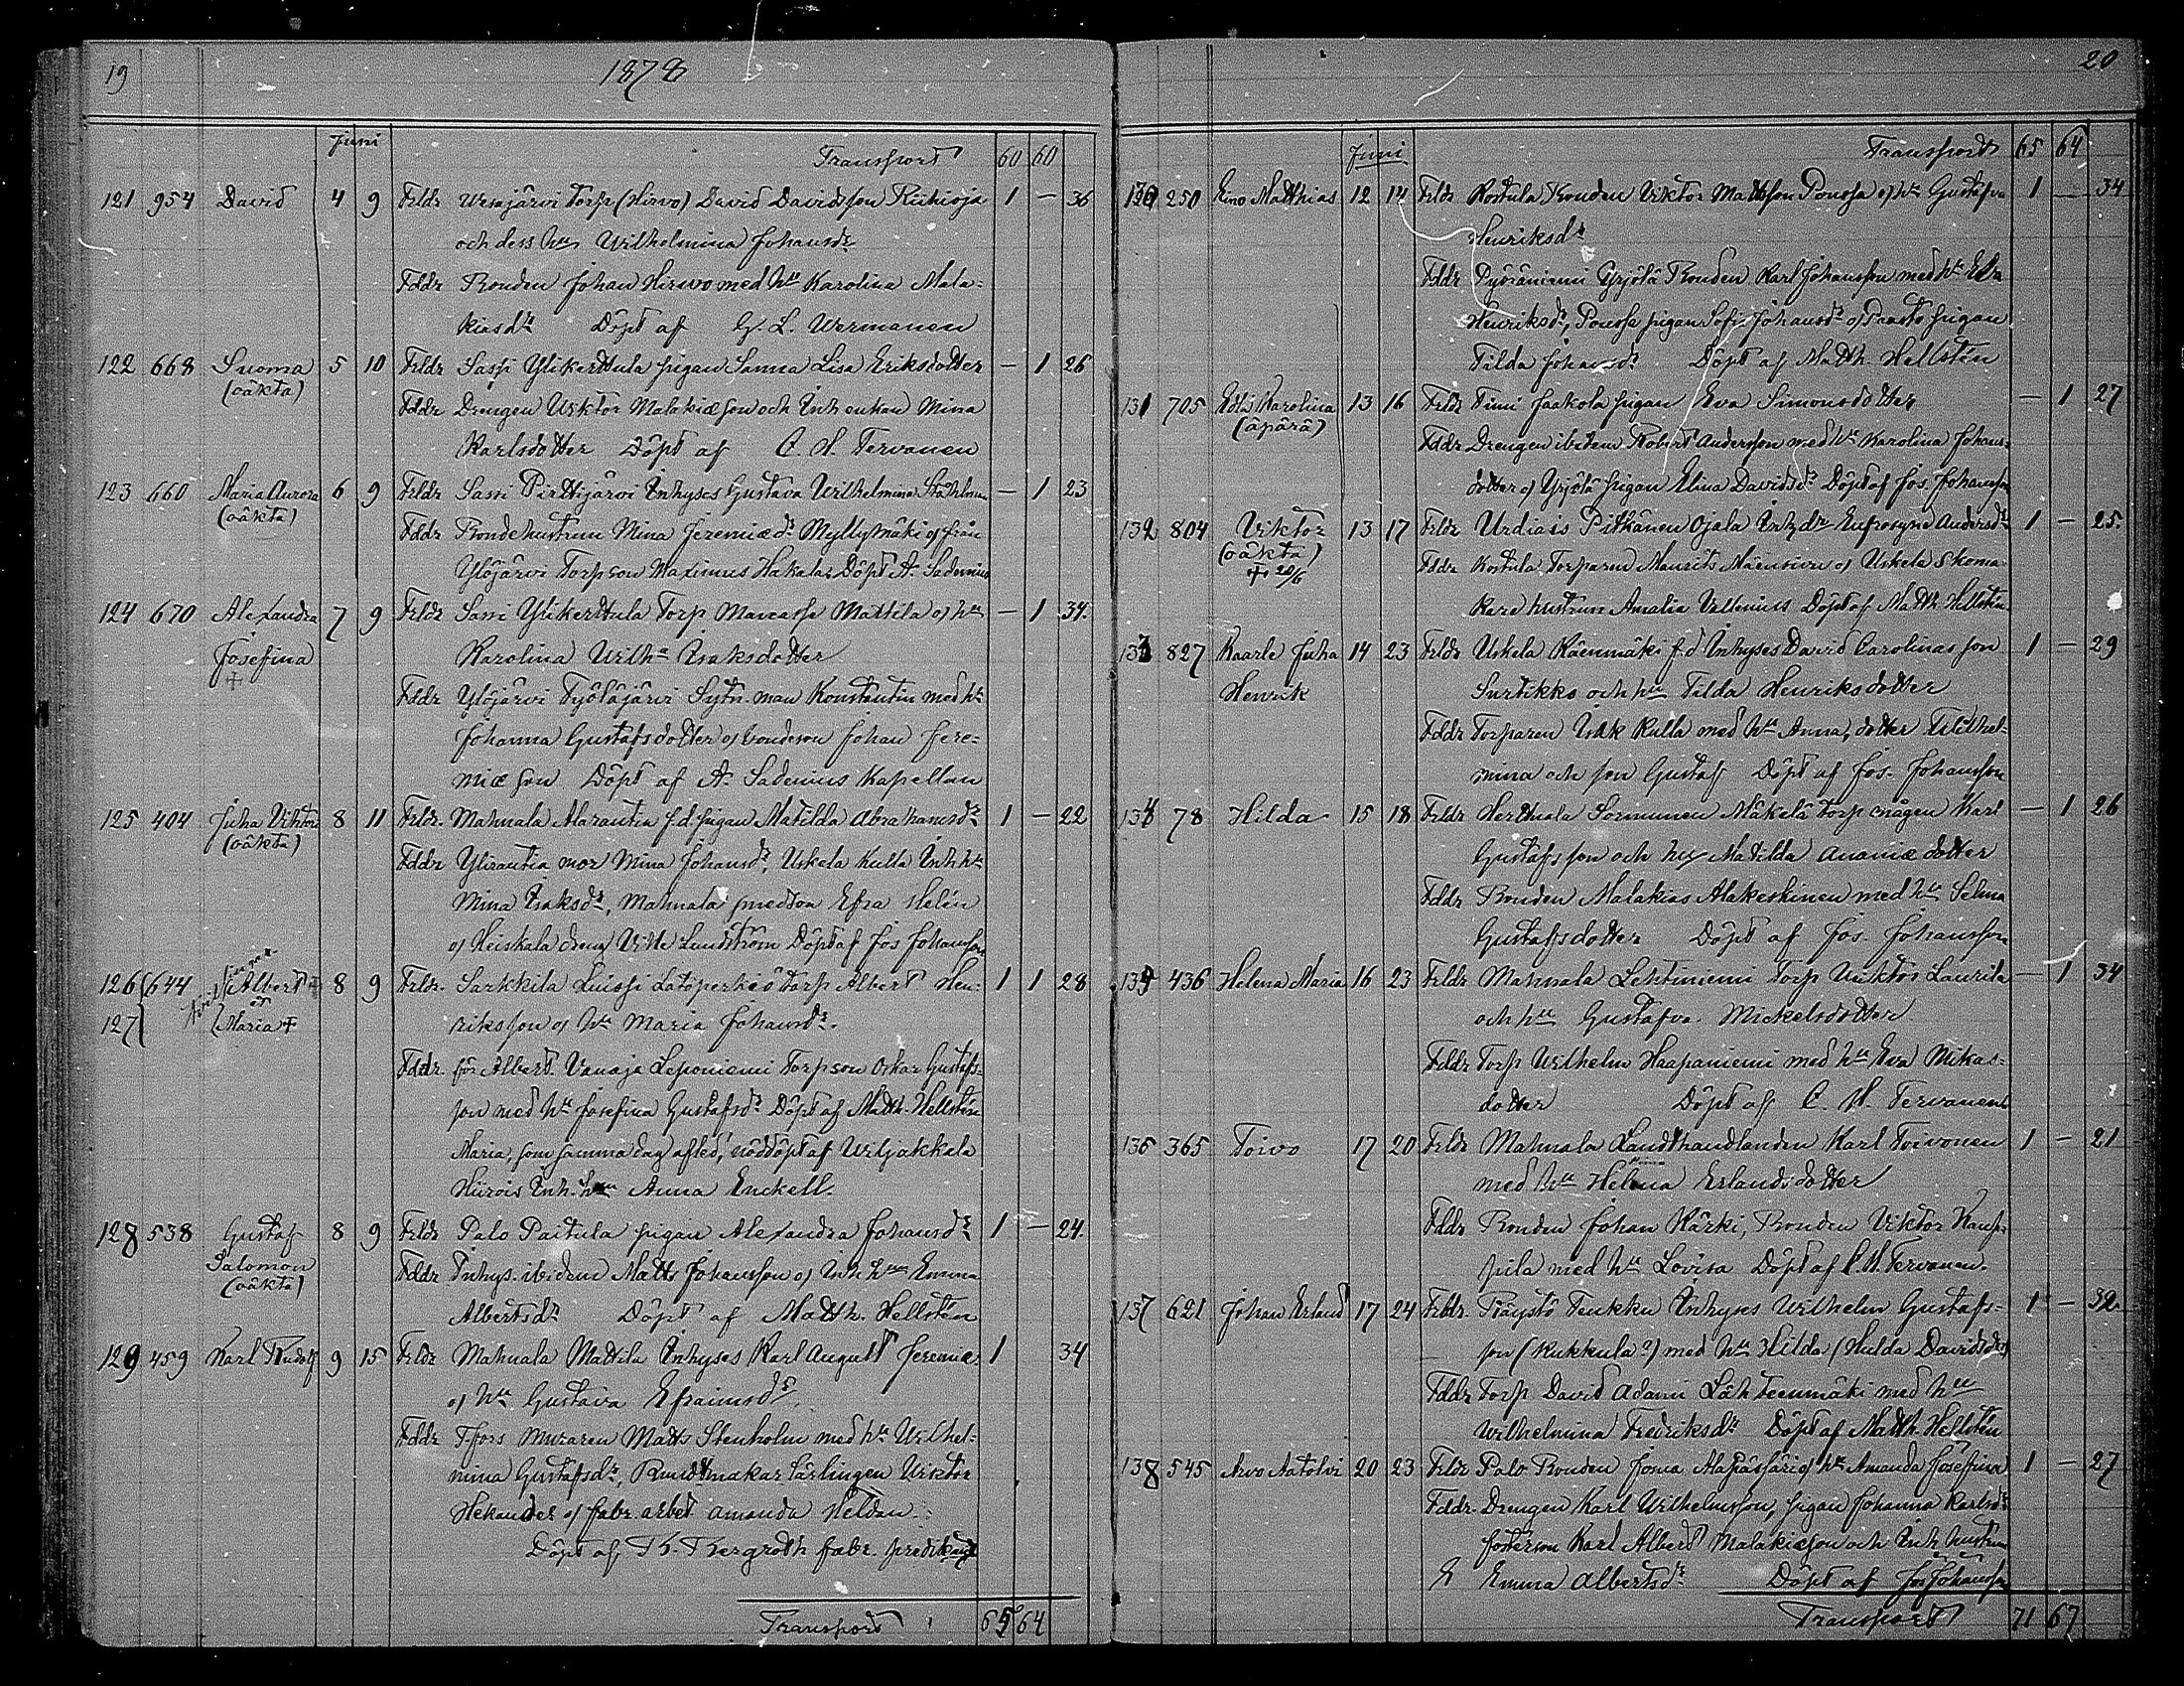 19 1878
Juni
Transport 60 60
121 954 David 4 9 Frldr Ursajärvi Torp (Hirvo) David Davidsson Riihioja 1 — 36
och dess hu Wilhelmina Johansdr
Fddr Bonden Johan Hirwo med hu Karolina Mala=
kiasdr Döpt af G. L. Wermanen
122 668 Suoma 5 10 Frldr Sassi Ylikerttula pigan Sanna Lisa Eriksdotter — 1 26
(oäkta)
Fddr Drengen Viktor Malakiæson och Inh enkan Mina
Karlsdotter Döpt af C. H. Tervanen
123 660 Maria Aurora 6 9 Frldr Sassi Pirttijärvi Inhyses Gustava Wilhelmina Ståhlman — 1 23
(oäkta)
Fddr Bondehustrun Mina Jeremiædr Myllymäki o från
Ylöjärvi Torpson Maximus Hakala Döpt A. Sadenius
124 670 Alexandra 7 9 Frldr Sassi Ylikerttula Torp Mattila o hu — 1 34.
Josefina Karolina Wilha Isaksdotter
+
Fddr Ylöjärvi Työläjärvi Sytn.man Konstantin med hu
Johanna Gustafsdotter o bondeson Johan Jere=
miæson Döpt af A. Sadenius Kapellan
125 404 Juha Viktor 8 11 Frldr. Mahnala Alarautia f.d pigan Matilda Abrahamsdr 1 — 22
(oäkta)
Fddr Ylirautia mor Mina Johansdr, Uskela Kulla Inh hu
Mina Isaksdr, Mahnala smedson Efra Helén
o Heiskala dreng Ville Lundström Döpt af Jos Johansson
126 644 Albert + 8 9 Frldr. Sarkkila Luissi Latöperkiö Torp Albert Hen= 1 1 28
127 Maria + riksson o hu Maria Johansdr.
Fddr. för Albert Vanaja Leponiemi Torpson Oskar Gustafs=
son med hu Josefina Gustafsdr Döpt af Matth. Hellstén
Maria, som samma dag afled, nöddöpt af Wiljakkala
Hiirois Inh. hu Anna Enckell.
128 538 Gustaf 8 9 Frldr Palo Paitula pigan Alexandra Johansdr 1 — 24.
Salomon
(oäkta)
Fddr Inhys. ibidem Matts Johansson o Inh hun Emma
Albertsdr Döpt af Matth. Hellstén
129 459 Karl Rudolf 9 15 Frldr Mahnala Mattila Inhyses Karl August Jeremiæ 1 34
o hu Gustava Efraimsdr.
Fddr Tfors Muraren Matts Stenholm med hu Wilhel=
mina Gustafsdr, Buntmakar lärlingen Viktor
Hekander o fabr. arbet Amanda Heldan.
Döpt af Th. Bergroth fabr. predikant
Transport 65 64
20
Juni
Transport 65 64
130 250 Eino Matthias 12 14 Frldr Rostula Bonden Viktor Mattsson Ponssa o hu Gustafva 1 — 34
Henriksdr
Fddr Pyöräniemi Yrjölä Bonden Karl Johansson med hu Eva
Henriksdr, Ponssa pigan Sofi Johansdr o Paasto pigan
Tilda Johansdr Döpt af Matth. Hellstén
131 705 Edla Karolina 13 16 Frldr Timi Jaakola pigan Eva Simonsdotter — 1 27
(äpärä)
Fddr Drengen ibidem Robert Andersson med hu Karolina Johans=
dotter o Yrjölä pigan Elina Davidsdr Döpt af Jos. Johansson
132 804 Viktor 13 17 Frldr Urdiais Pitkänen Ojala Inh.dr Eufrosyne Andersdr 1 — 25.
(oäkta)
+ 20/6
Fddr Kostula Torparen Maurits Mäensivu o Uskela Skoma
kare hustrun Amalia Villenius Döpt af Matth Hellstén
133 827 Kaarle Juha 14 23 Frldr Uskela Käenmäki f.d Inhyses David Carolinas son 1 — 29
Henrik Surtikko och hu Tilda Henriksdotter
Fddr Torparen Isak Kulla med hu Anna, dotter Wilhel=
mina och son Gustaf Döpt af Jos. Johansson
134 78 Hilda 15 18 Frldr Herttuala Sormunen Mäkelä torp mågen Karl — 1 26
Gustafsson och hu Matilda Ananiædotter
Fddr Bonden Malakias Alakeskinen med hu Selma
Gustafsdotter Döpt af Jos. Johansson
135 436 Helena Maria 16 23 Frldr Mahnala Lehtiniemi Torp Viktor Laurila — 1 34
och hu Gustafva Mickelsdotter
Fddr Torp Wilhelm Haapaniemi med hu Eva Mikas=
dotter Döpt af C. H. Tervanen
136 365 Toivo 17 20 Frldr Mahnala Landthandlanden Karl Toivonen 1 — 21
med hu Helena Erlandsdotter
Fddr Bonden Johan Kärki, Bonden Viktor Kaup=
pila med hu Lovisa Döpt af C. H. Tervanen.
137 621 Johan Erland 17 24 Frldr. Röystö Teukku Inhyses Wilhelm Gustafs= 1 — 32.
son (Kukkula?) med hu Hilda (Hulda Davidsdr)
Fddr Torp David Adami Lähteenmäki med hu
Wilhelmina Fredriksdr Döpt af Matth. Hellstén
138 545 Arvo Aatolvi 20 23 Frldr Palo Bonden Josua Alapässäri o hu Amanda Josefina 1 — 27
Fddr. Drengen Karl Wilhelmsson, pigan Johanna Karlsdr
fosterson Karl Albert Malakiæson och Inh. hustrun
E Emma Albertsdr Döpt af Jos Johansson
Transport 71 67